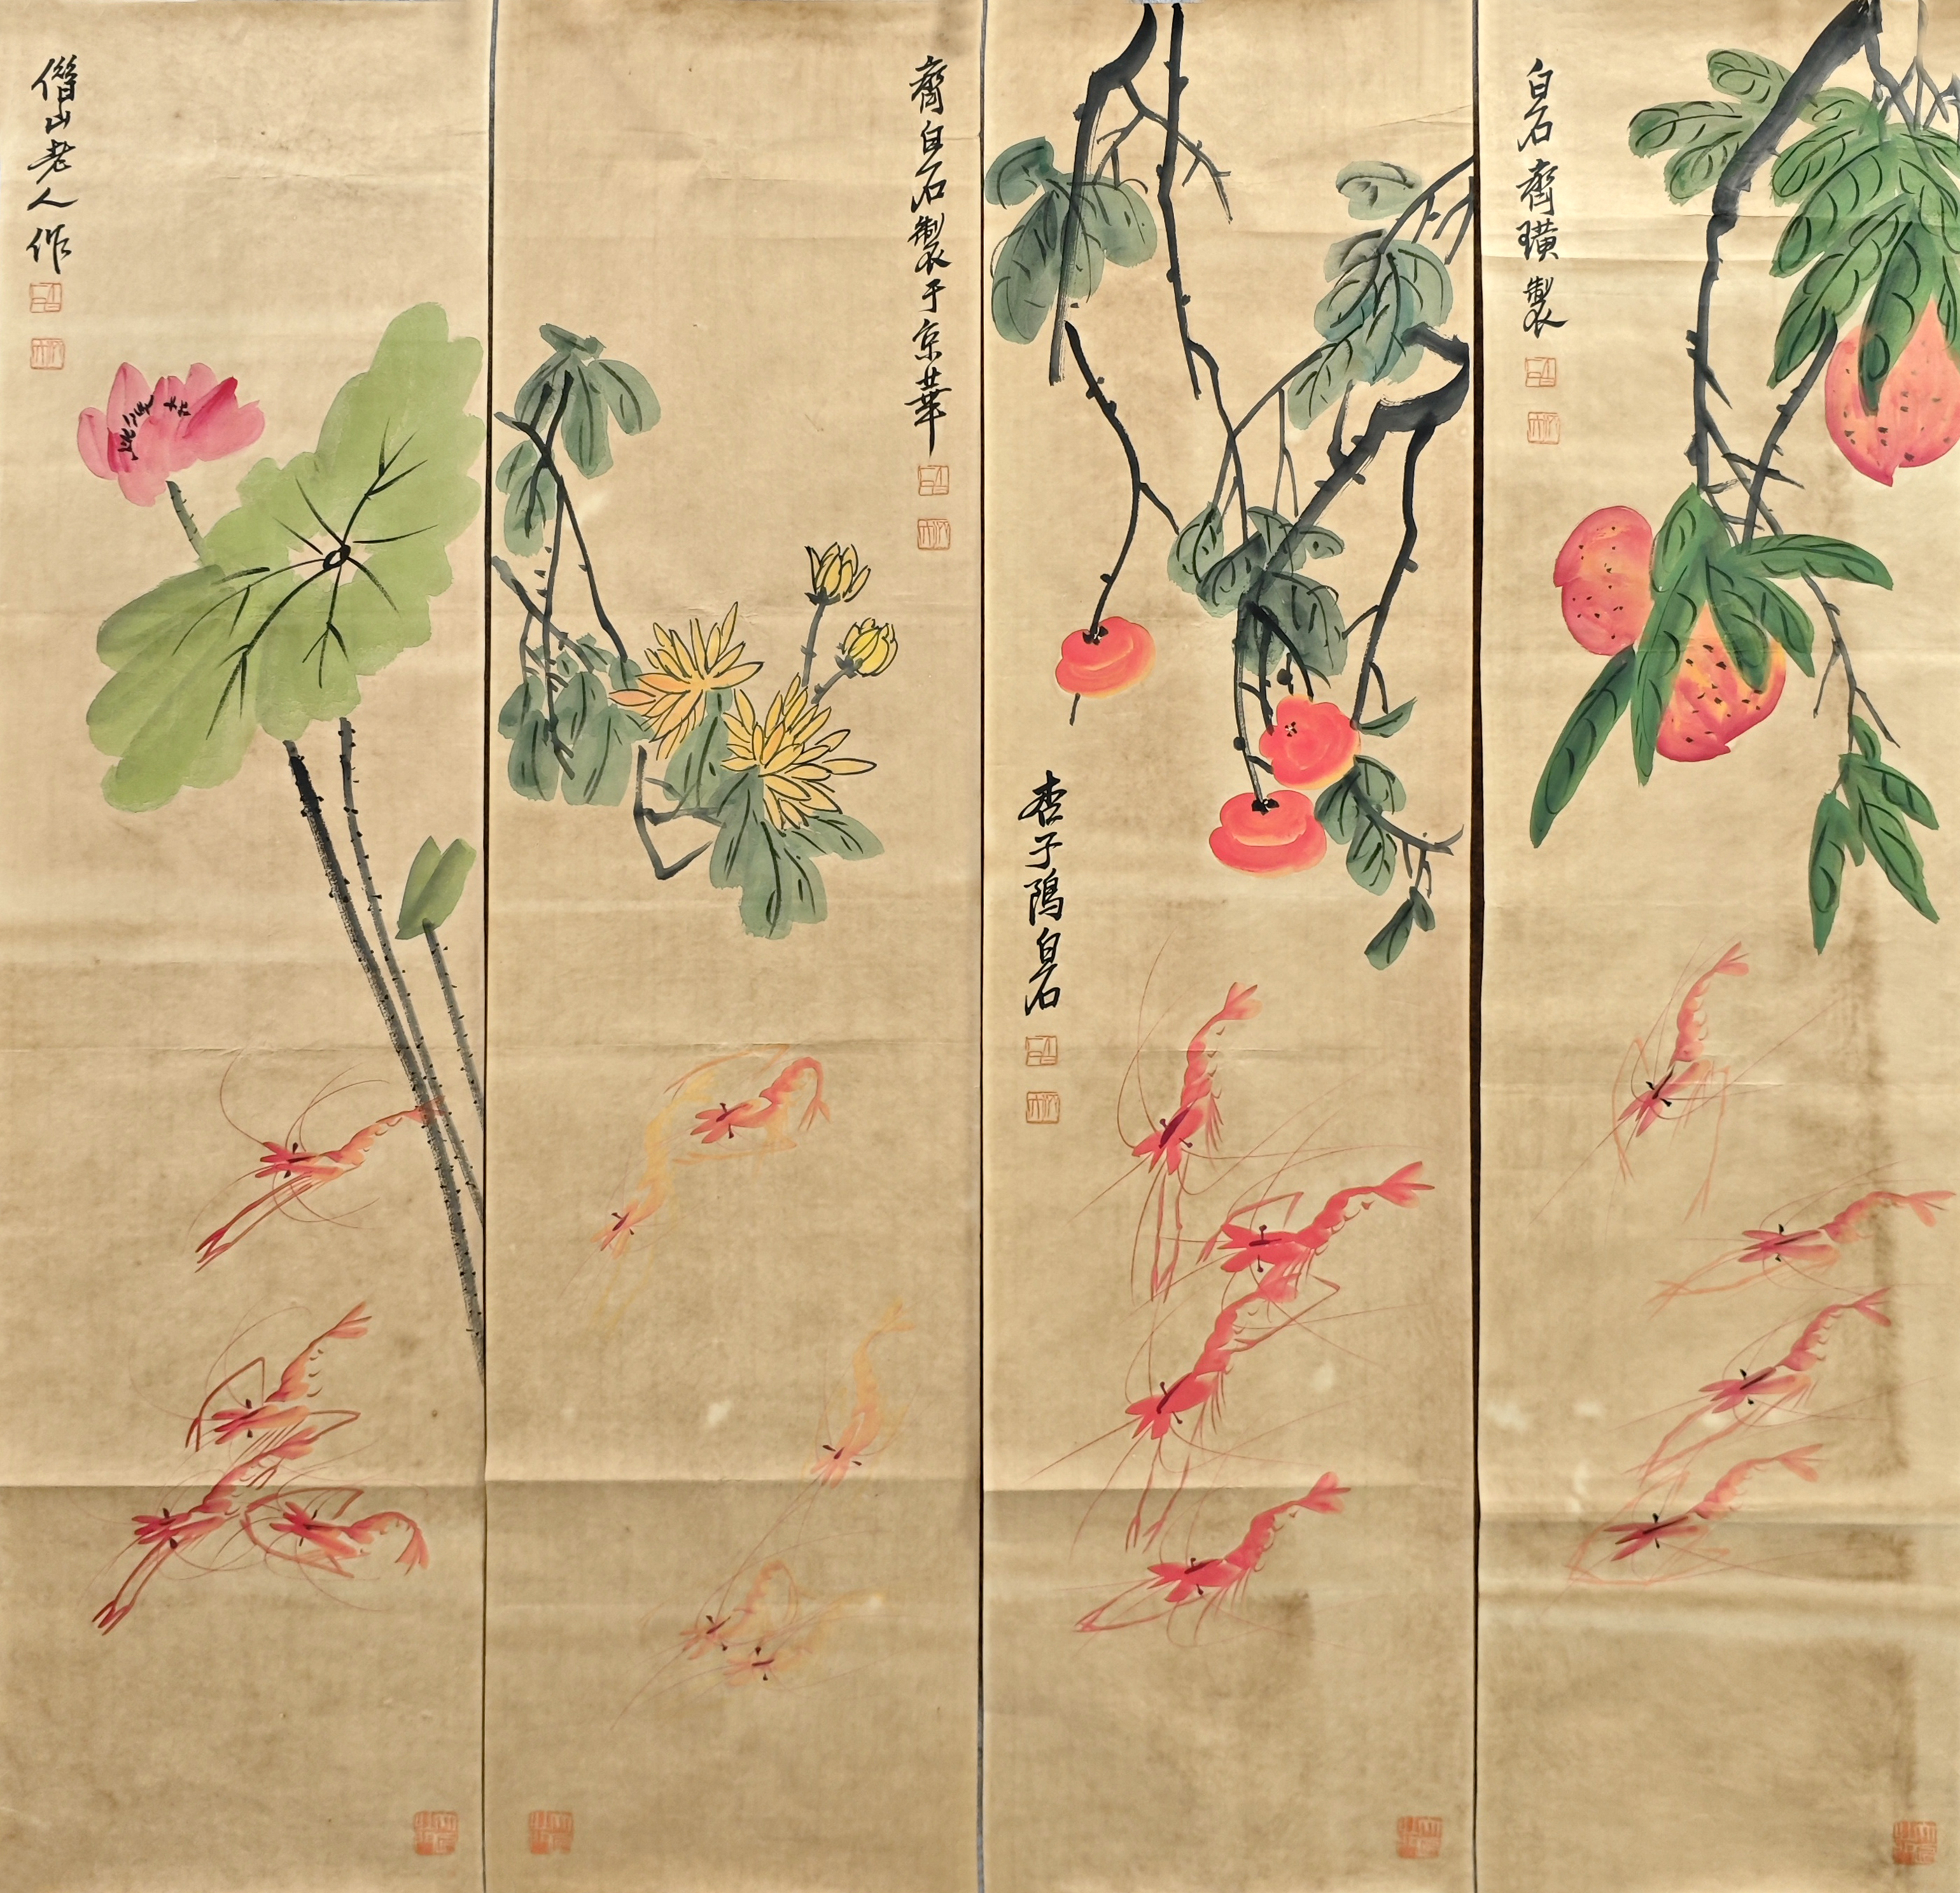 白石齊璜製
杏子隖白石
齊白石製于京華
借山老人作